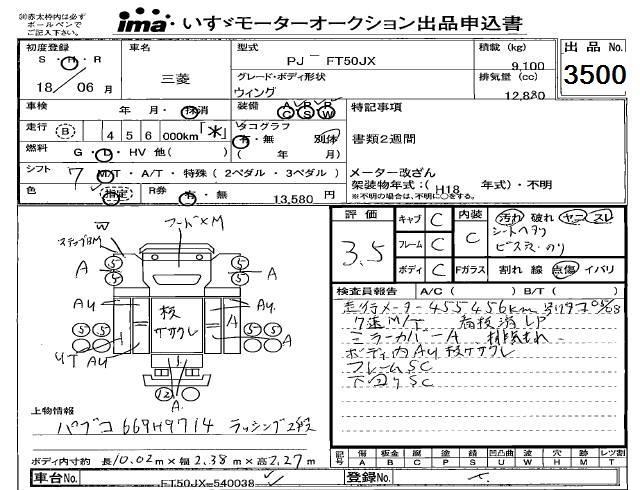 ※赤太枠内は必ず
ボールペンで
ご記入下さい。
ima いすゞモーターオークション出品申込書
初度登録 S・H・R 18/06月
車名 三菱
型式 PJ－FT50JX
積載 (kg) 9,100
グレード・ボディ形状 ウィング
排気量 (cc) 12,880
出品 No. 3500
車検 年 月・抹消
装備 A/C P/S R/W
特記事項
走行 B 456 000km「*」
タコグラフ 有・無 別体 ( 年 月)
書類2週間
燃料 G・D・HV 他( )
シフト 7 M/T・A/T・特殊 (2ペダル・3ペダル)
メーター改ざん
色 ( 指定 ) R券 有・無 13,580 円
架装物年式：( H18 年式)・不明
※不明の場合は、不明に○をする。
評価 3.5
キャブ C
フレーム C
ボディ C
内装 C
汚れ 破れ ヤニ スレ
シートヘタリ
ビス穴・のり
Fガラス 割れ 線 点傷 イバリ
W フードXM
ステップBM
⑤ ⑤ A
⑤ ⑤ A
AU 板ササクレ AU A
⑤⑤ UT AU
⑤⑤ A
⑫ A
検査員報告 A/C ( ) B/T ( )
走行メーター455456km
7速M/T
ミラーカバーA
ボディ内AU板ササクレ
フレームSC
下回りSC
上物情報
パブコ 669H9714 ラッシング2段
ボディ内寸約 長10.02m×幅2.38m×高2.27m
記号 傷A 板金B 腐C 塗P 錆S 凹凸曲U 波W 穴H 欠M レツ割T
車台No. FT50JX-540038
登録No.